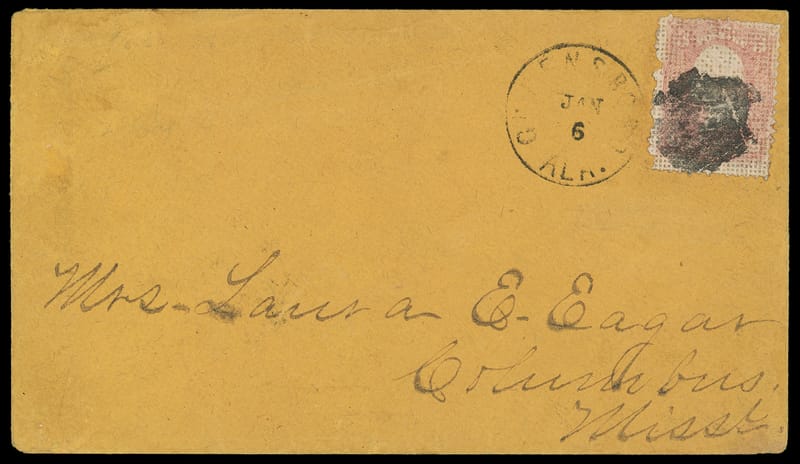 GREENSBORO
JAN
6
ALA.
Mrs- Laura E- Eagar
Columbus.
Misst.